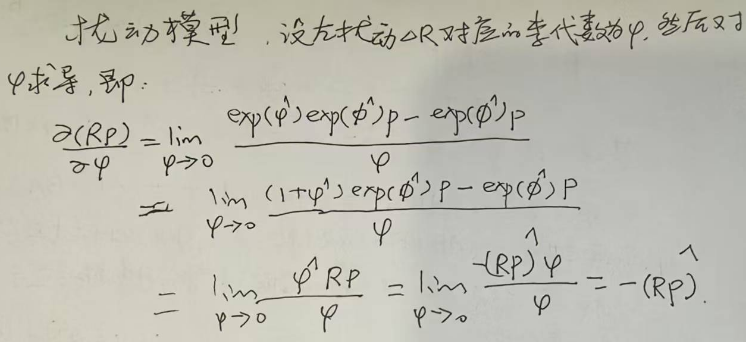 扰动模型,设左扰动△R对应的李代数为φ.然后对
φ求导,即:
∂(RP)/∂φ = lim φ→0 (exp(φ^)exp(ϕ^)p - exp(ϕ^)p)/φ
= lim φ→0 ((1+φ^)exp(ϕ^)p - exp(ϕ^)P)/φ
= lim φ→0 (φ^RP)/φ = lim φ→0 (-(RP)^φ)/φ = -(Rp)^.